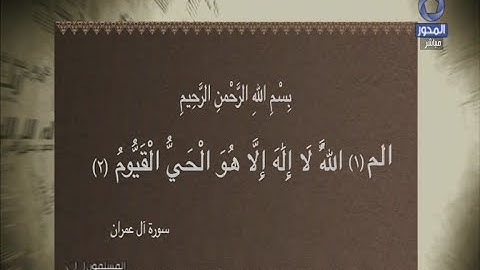 المحور
مباشر
بِسْمِ اللهِ الرَّحْمنِ الرَّحِيمِ
الم (١) اللهُ لَا إِلَٰهَ إِلَّا هُوَ الْحَيُّ الْقَيُّومُ (٢)
سورة آل عمران